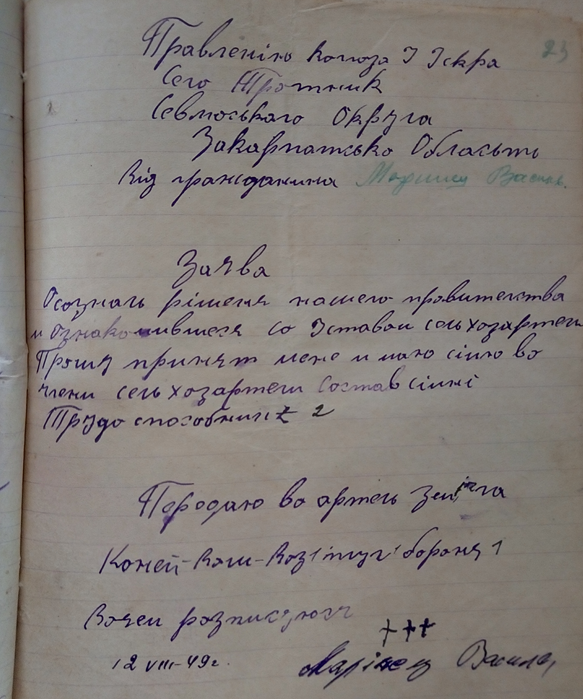 23
Правлению колоза І Іскра
Село Тротник
Севлюського Округа
Закарпатсько Обласьть
Від гражданина Маринец Васил.
Заява
Осознать рішеня нашего правитества
и ознакомившеся со Уставом сельхозартели
Прошу принят мене и мою сімю во
члени сельхозартели Состав сімні
Трудоспособних 2
Передаю во артель Землі га
Коней - Воли - Воз 1 плуг 1 борона 1
Вочем розписуюсь
+++
12 VIII-49г. Марінец Васил